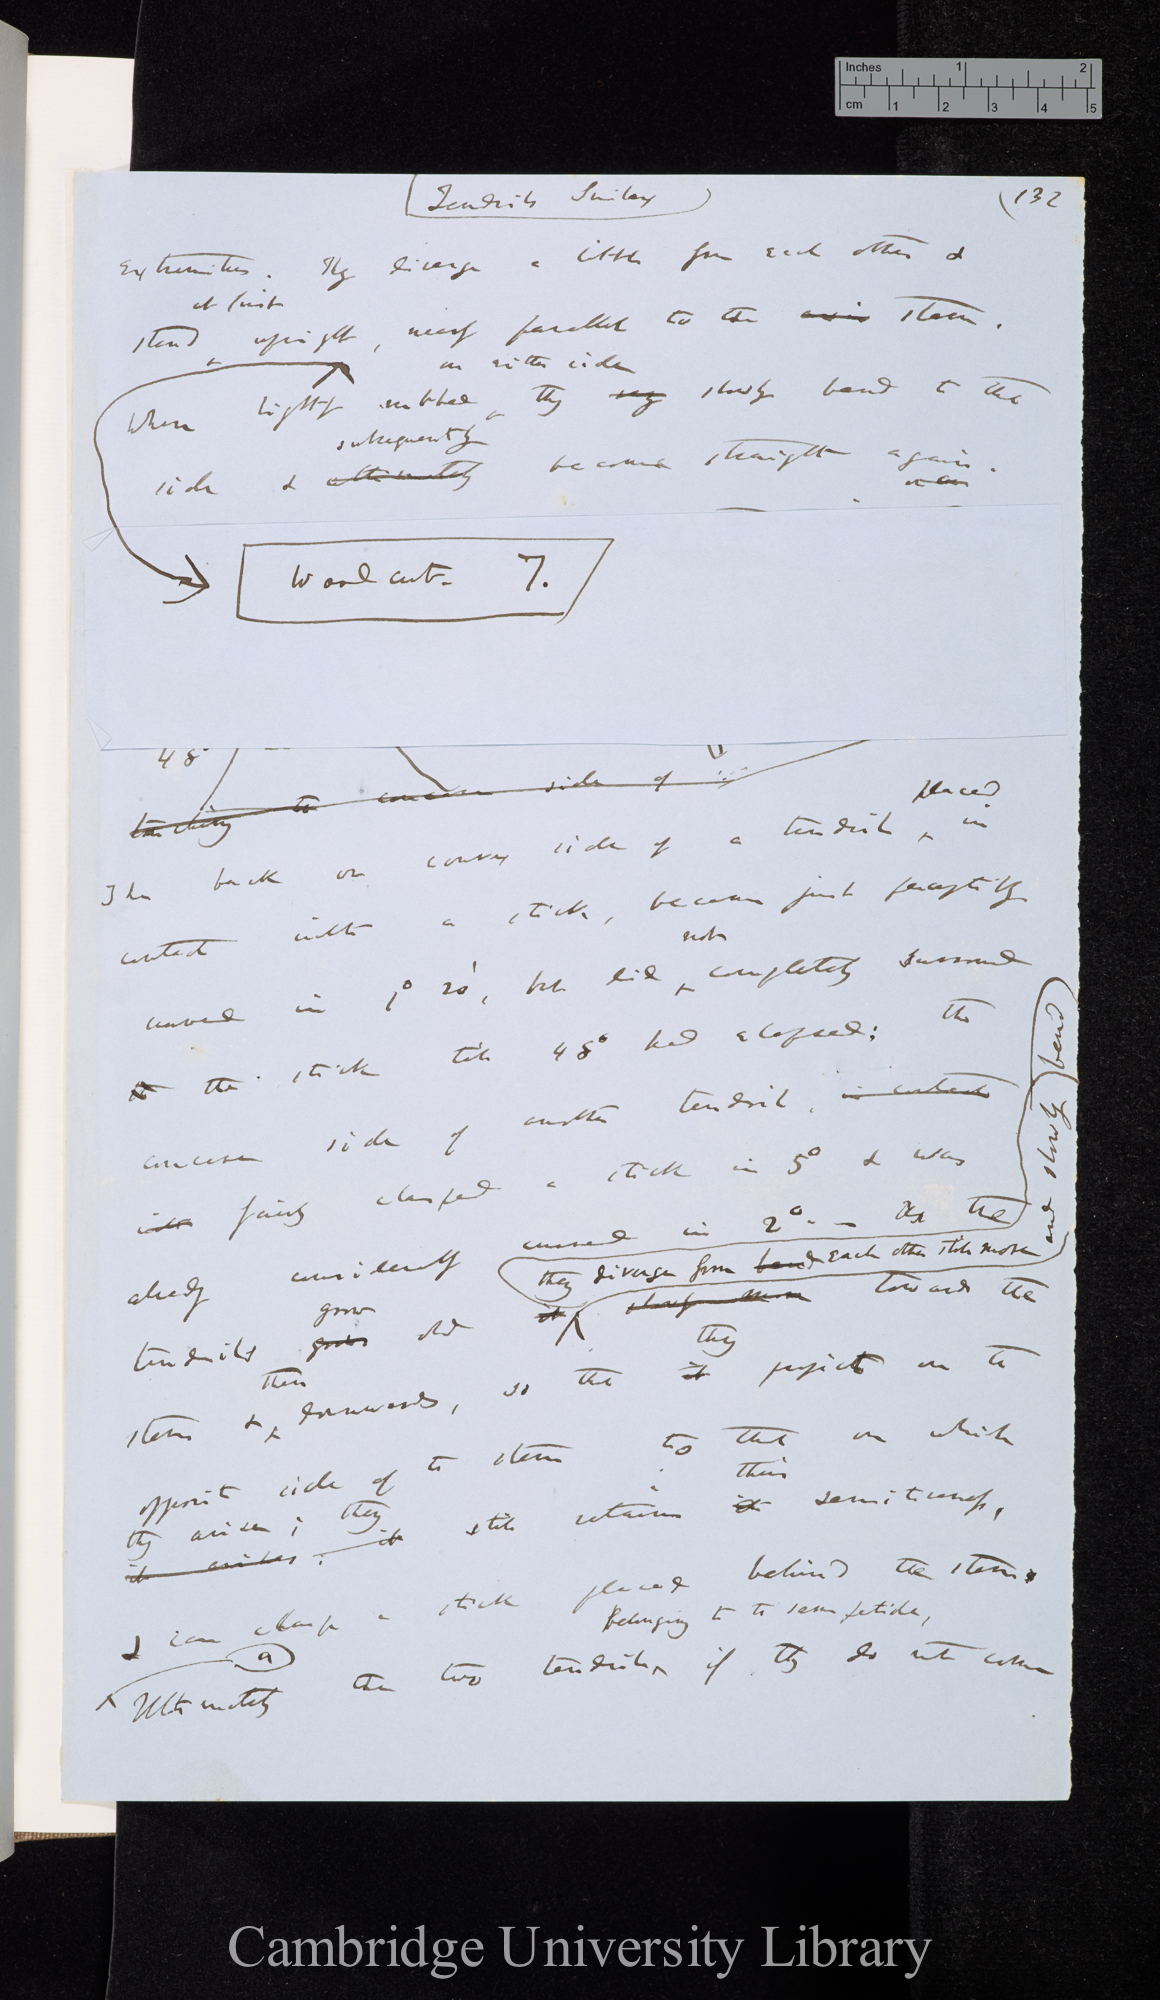 Inches 1 2
cm 1 2 3 4 5
Tendrils Smilax
(132
extremities. They diverge a little from each other &
at first
stand upright, nearly parallel to the axis stem.
on either side
When lightly rubbed, they slowly bend to that
subsequently
side & ultimately become straight again.
Woodcut. 7.
48°
touching to concave side of
placed
The back or convex side of a tendril, in
contact with a stick, became just perceptibly
not
curved in 1° 20', but did completely surround
the stick till 48° had elapsed; the
concave side of another tendril, in contact
with fairly clasped a stick in 5° & was
already considerably curved in 2°. — As the
and slowly bend
they diverge from bend each other still more
grow
tendrils grows old it slowly more towards the
then they
stem & downwards, so that it project on the
opposite side of the stem to that on which
their
they arise; they
it arises; it still retains it sensitiveness,
& can clasp a stick placed behind the stem.
Belonging to the same petiole,
(a)
Ultimately the two tendrils, if they do not come
Cambridge University Library